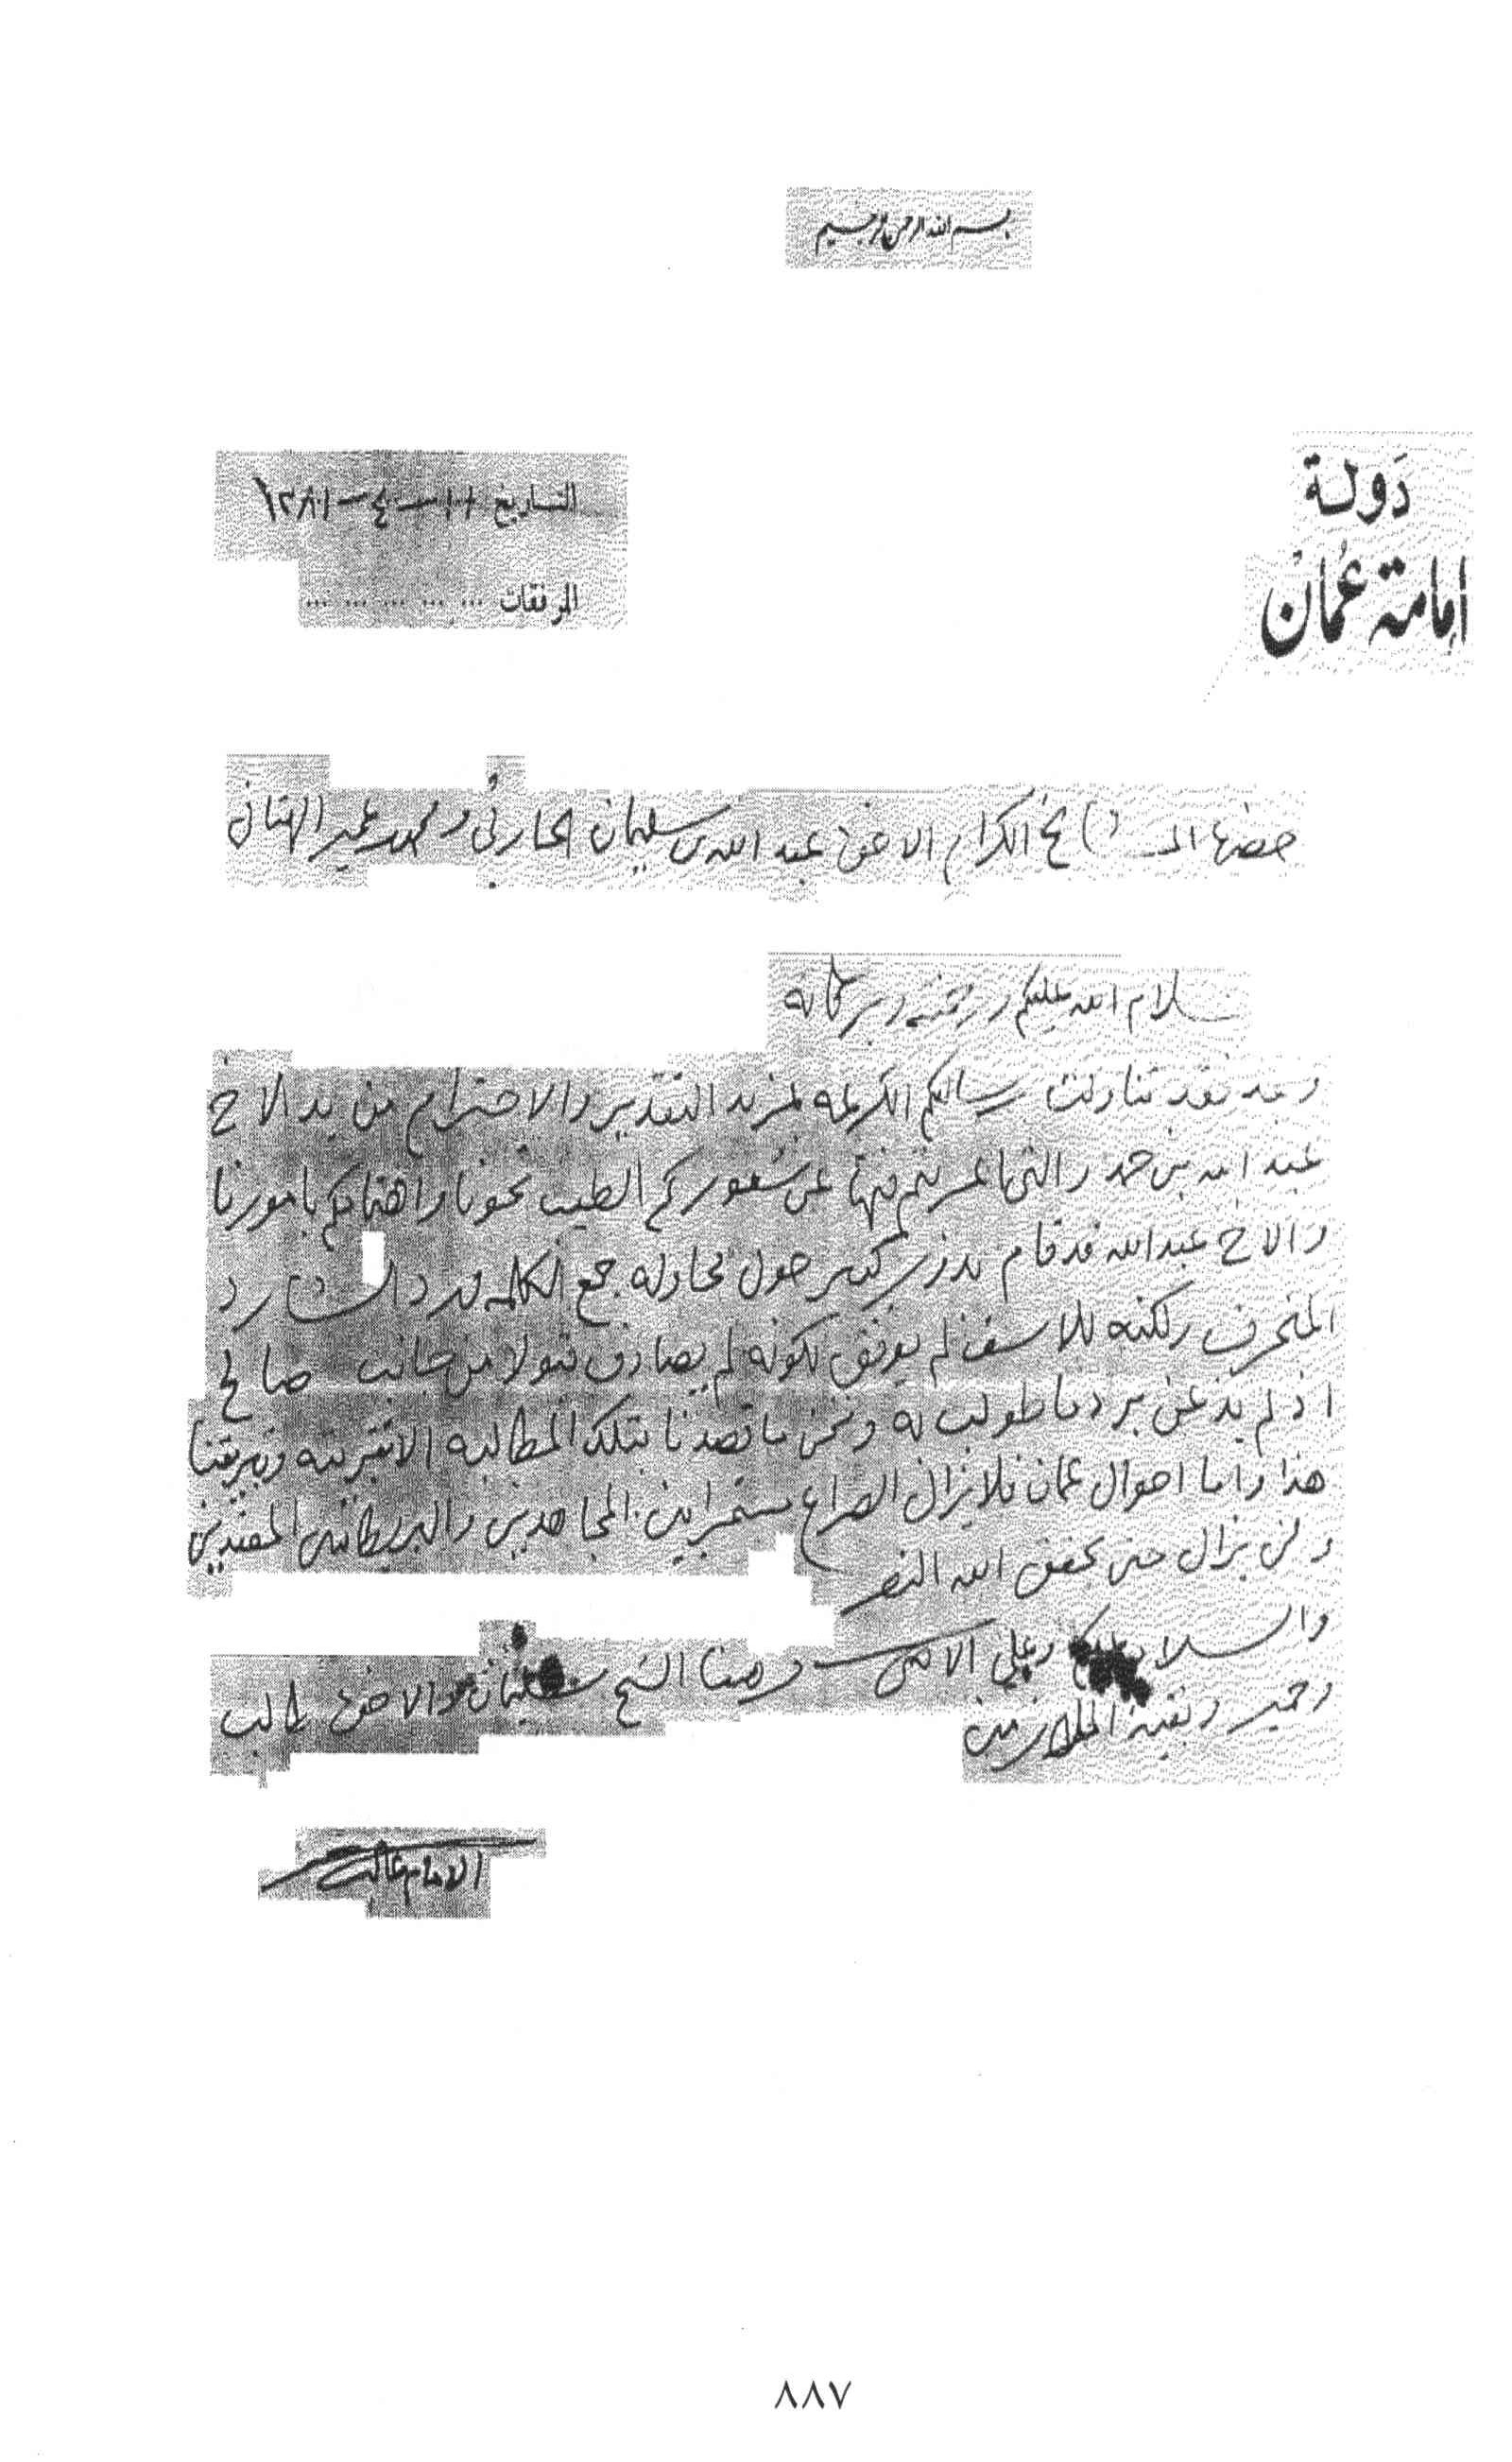 بسم الله الرحمن الرحيم
دولة
إمامة عمان
التاريخ ١١-٤-١٣٨١
المرفقات ... ... ... ... ...
حضرات المشايخ الكرام الاخوان عبد الله بن سليمان الحارثي ومحمد الهنائي
سلام الله عليكم ورحمته وبركاته
وبعد فقد تناولت رسالتكم الكريمة بمزيد التقدير والاحترام من يد الاخ
عبد الله بن حمد والتي اعربتم فيها عن شعوركم الطيب نحونا واهتمامكم بامورنا
والاخ عبدالله قد قام بدور كبير حول محاولة جمع الكلمة ورد الشارد
المنحرف ولكنه للاسف لم يوفق لكونه لم يصادف قبولا من جانب صالح
اذ لم يذعن برد ما طولب به ونحن ما قصدنا بتلك المطالبة الا
هذا واما احوال عمان فلا يزال الصراع مستمرا بين المجاهدين والبريطانيين المعتدين
ولن يزال حتى يحقق الله النصر
والسلام عليكم وعلى ومنا الشيخ سليمان والاخوان طالب
وحمير وبقية
الامام غالب
٨٨٧